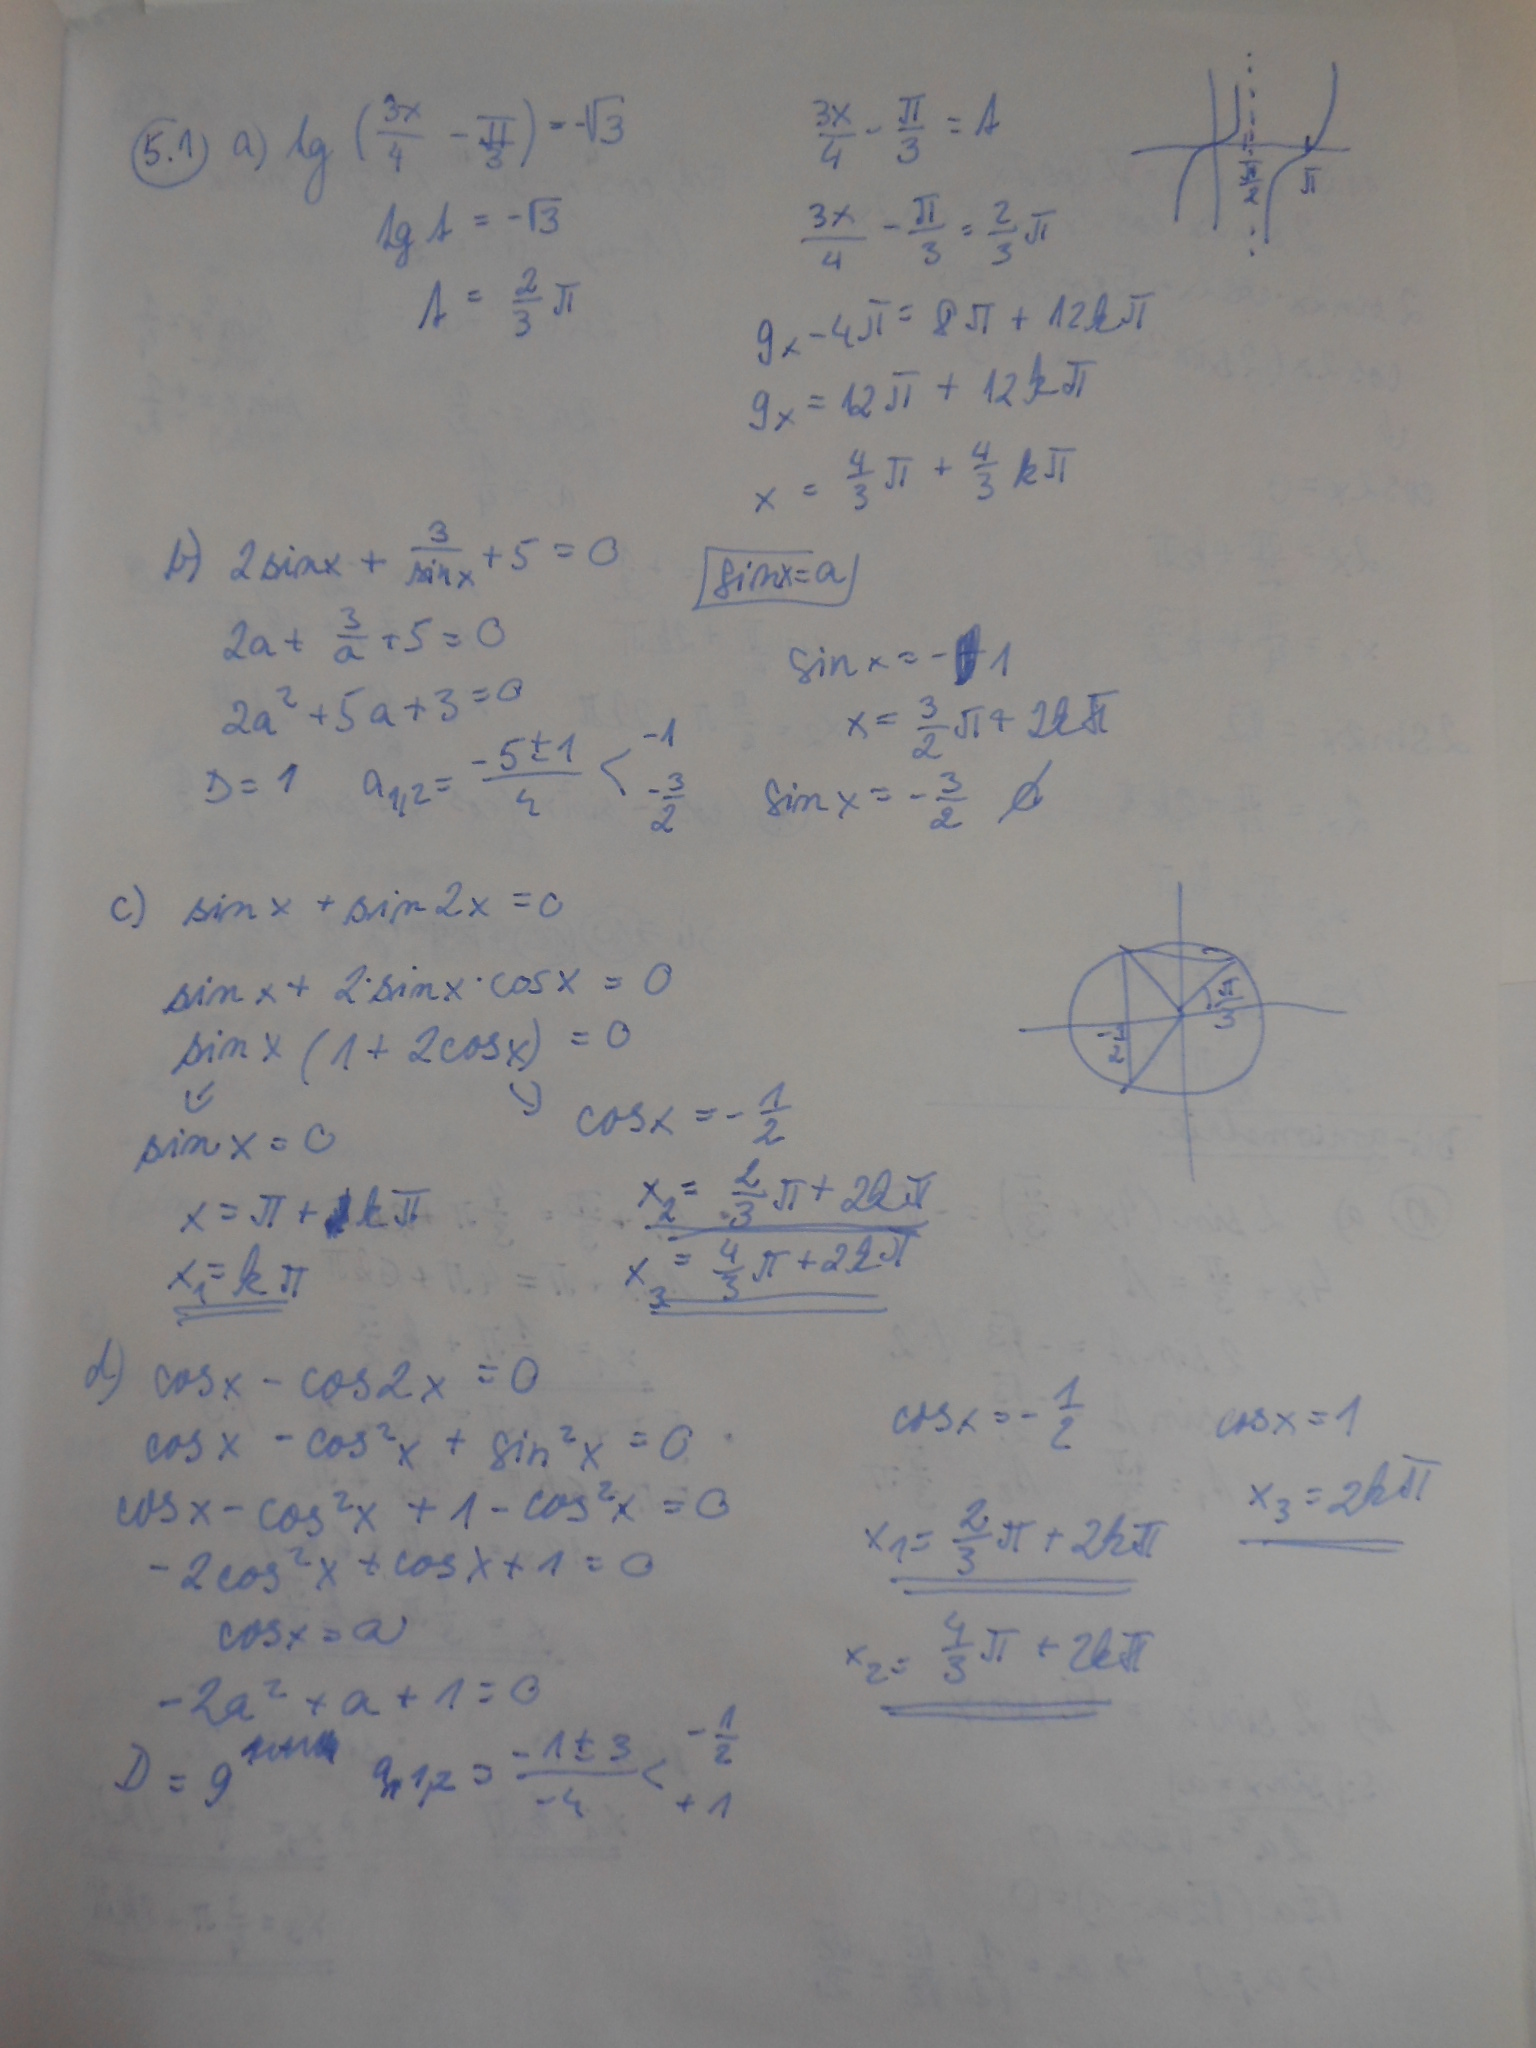 5.1 a) tg (3x/4 - π/3) = -√3
tg A = -√3
A = 2/3 π
3x/4 - π/3 = A
3x/4 - π/3 = 2/3 π
9x - 4π = 8π + 12kπ
9x = 12π + 12kπ
x = 4/3 π + 4/3 kπ
π/2 π
b) 2sinx + 3/sinx + 5 = 0
sinx = a
2a + 3/a + 5 = 0
2a² + 5a + 3 = 0
D = 1 a1,2 = (-5 ± 1)/4 < -1
-3/2
sin x = -1
x = 3/2 π + 2kπ
sin x = -3/2 ∅
c) sin x + sin 2x = 0
sin x + 2·sinx·cosx = 0
sinx (1 + 2cosx) = 0
sin x = 0
x = π + kπ
x1 = kπ
cosx = -1/2
x2 = 2/3 π + 2kπ
x3 = 4/3 π + 2kπ
π/3
-1/2
d) cosx - cos2x = 0
cosx - cos²x + sin²x = 0
cosx - cos²x + 1 - cos²x = 0
-2cos²x + cosx + 1 = 0
cosx = a
-2a² + a + 1 = 0
D = 9 a1,2 = (-1 ± 3)/-4 < -1/2
+1
cosx = -1/2
x1 = 2/3 π + 2kπ
x2 = 4/3 π + 2kπ
cosx = 1
x3 = 2kπ